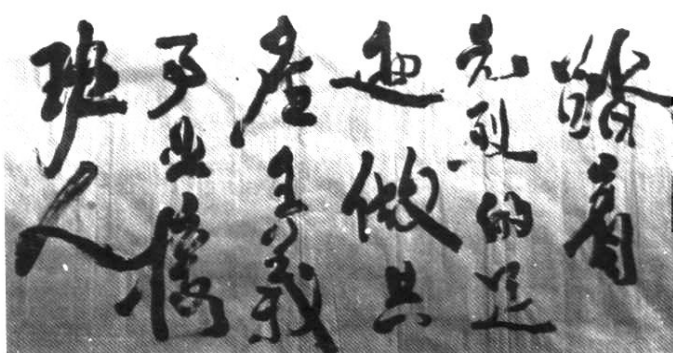 踏着
先烈的足
迹做共
产主义
事业接
班人